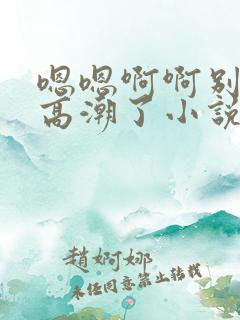 嗯嗯啊啊别
高潮了小说
趙婀娜
未经同意禁止转载